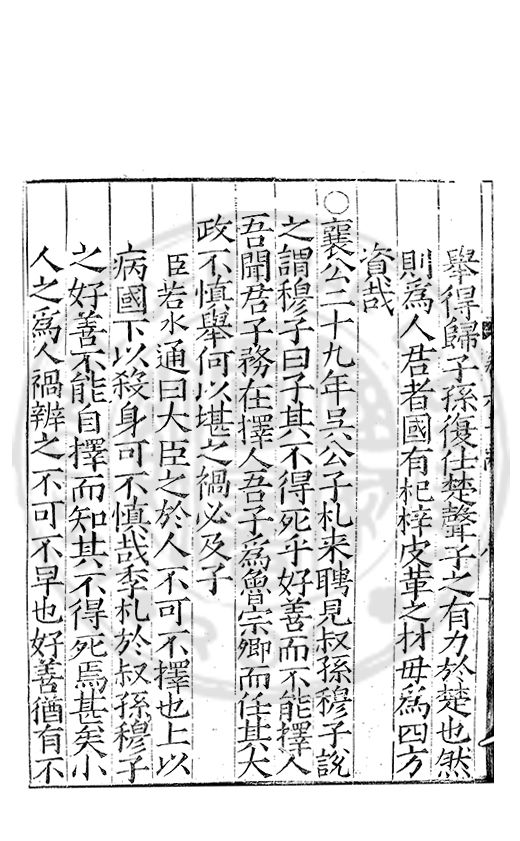 舉得歸子孫復仕楚聲子之有力於楚也然
則爲人君者國有杞梓皮革之材毋爲四方
資哉
○襄公二十九年吳公子札来聘見叔孫穆子說
之謂穆子曰子其不得死乎好善而不能擇人
吾聞君子務在擇人吾子爲魯宗卿而任其大
政不慎舉何以堪之禍必及子
臣若水通曰大臣之於人不可不擇也上以
病國下以殺身可不慎哉季札於叔孫穆子
之好善不能自擇而知其不得死焉甚矣小
人之爲人禍辨之不可不早也好善猶有不